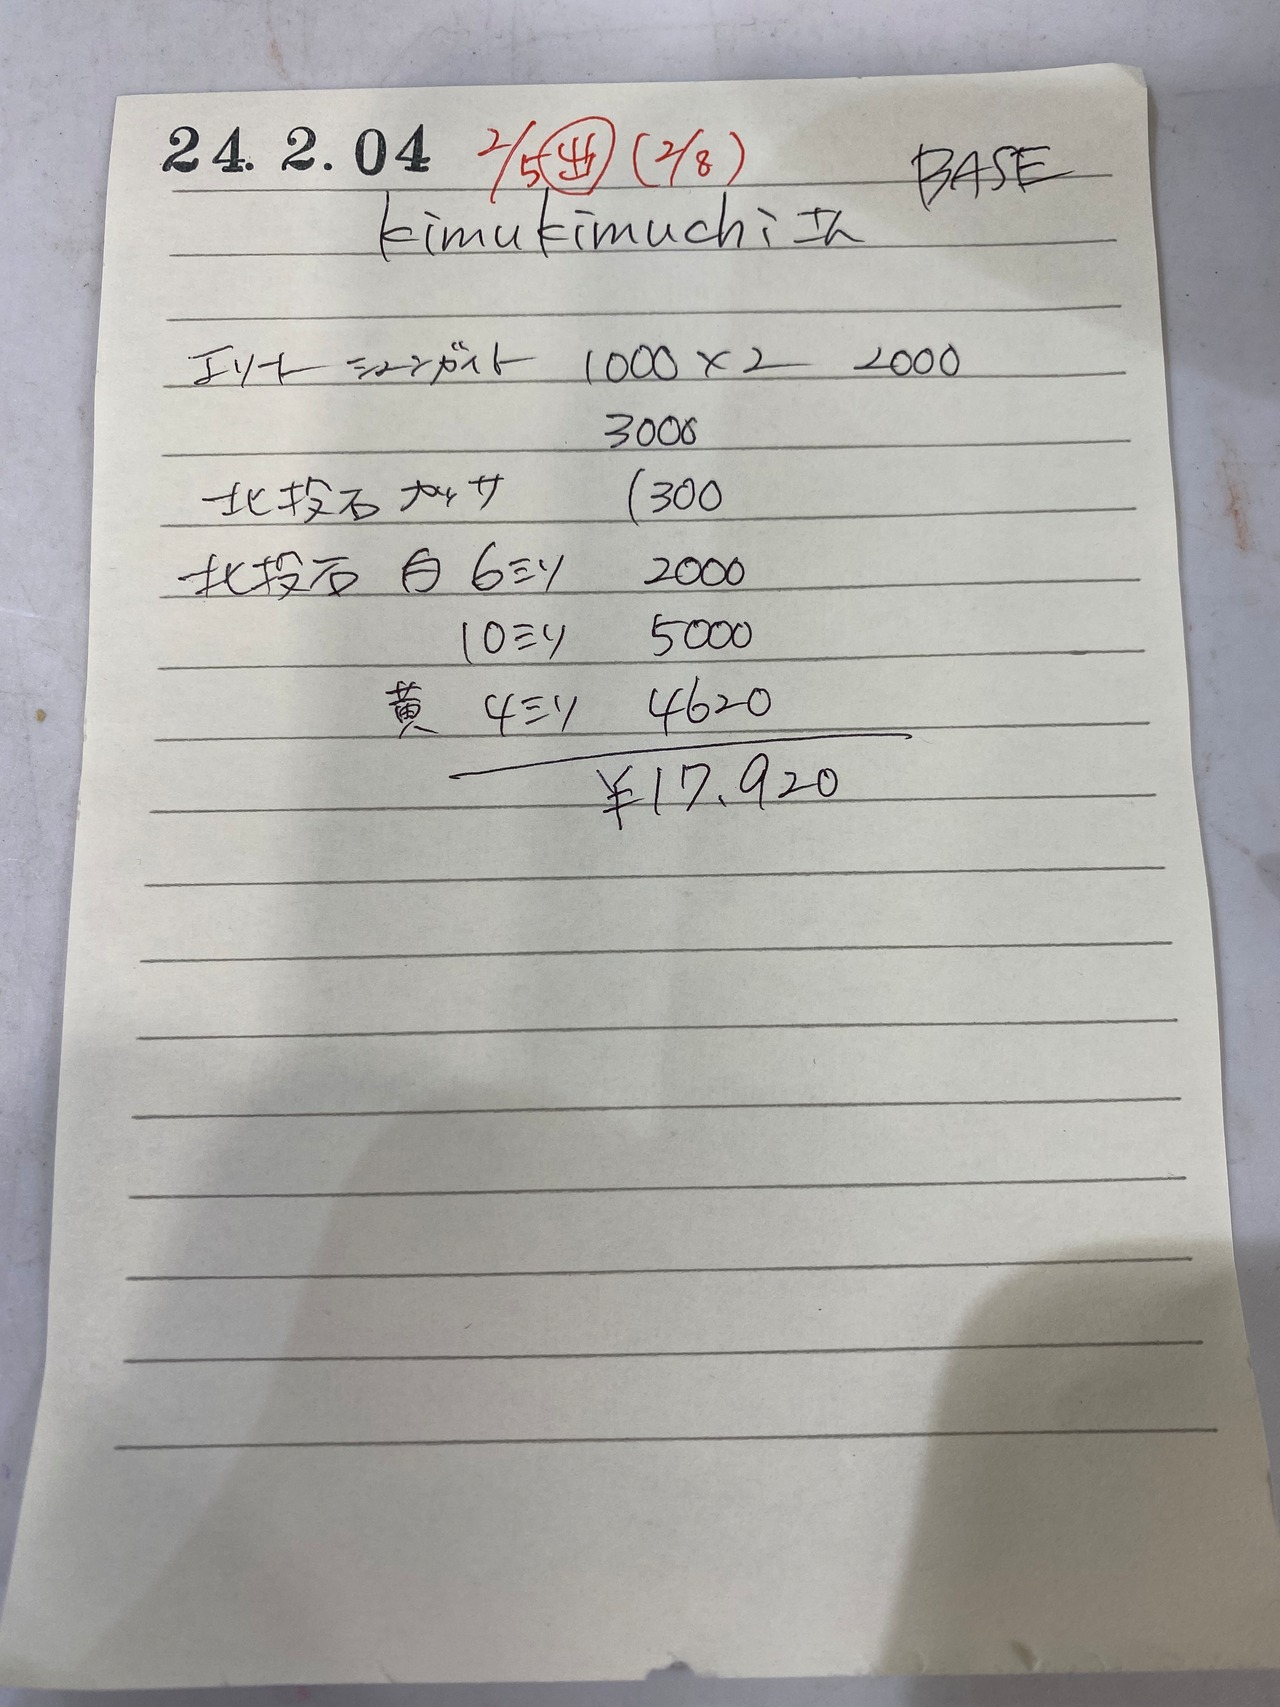 24. 2. 04 2/5 出 (2/8) BASE
kimukimuchi さん
エリート シュンガイト 1000×2 2000
3000
北投石 カッサ 1300
北投石 白 6ミリ 2000
10ミリ 5000
黄 4ミリ 4620
¥17.920